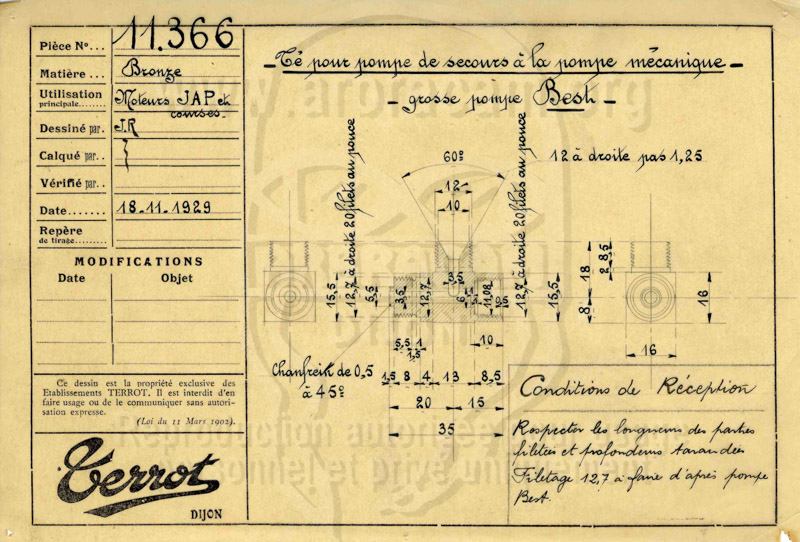 Pièce Nº... 11.366
Matière ... Bronze
Utilisation principale... Moteurs JAP et courses
Dessiné par. J.R
Calqué par..
Vérifié par..
Date....... 18-11-1929
Repère de tirage...
MODIFICATIONS
Date Objet
Ce dessin est la propriété exclusive des
Etablissements TERROT. Il est interdit d'en
faire usage ou de le communiquer sans autori-
sation expresse.
(Loi du 11 Mars 1902).
Terrot
DIJON
- Té pour pompe de secours à la pompe mécanique -
- grosse pompe Best -
12 à droite pas 1,25
60º
12
10
12,7 à droite 20 filets au pouce
12,7 à droite 20 filets au pouce
15,5
5,5
3,5
12,7
3,5
6
11,08
15,5
18
8
2 8,5
16
16
5,5 1 10
1,5
Chanfrein de 0,5
à 45º
1,5 8 4 13 8,5
20 15
35
Conditions de Réception
Respecter les longueurs des parties
filetées et profondeurs taraudées
Filetage 12,7 à faire d'après pompe
Best.